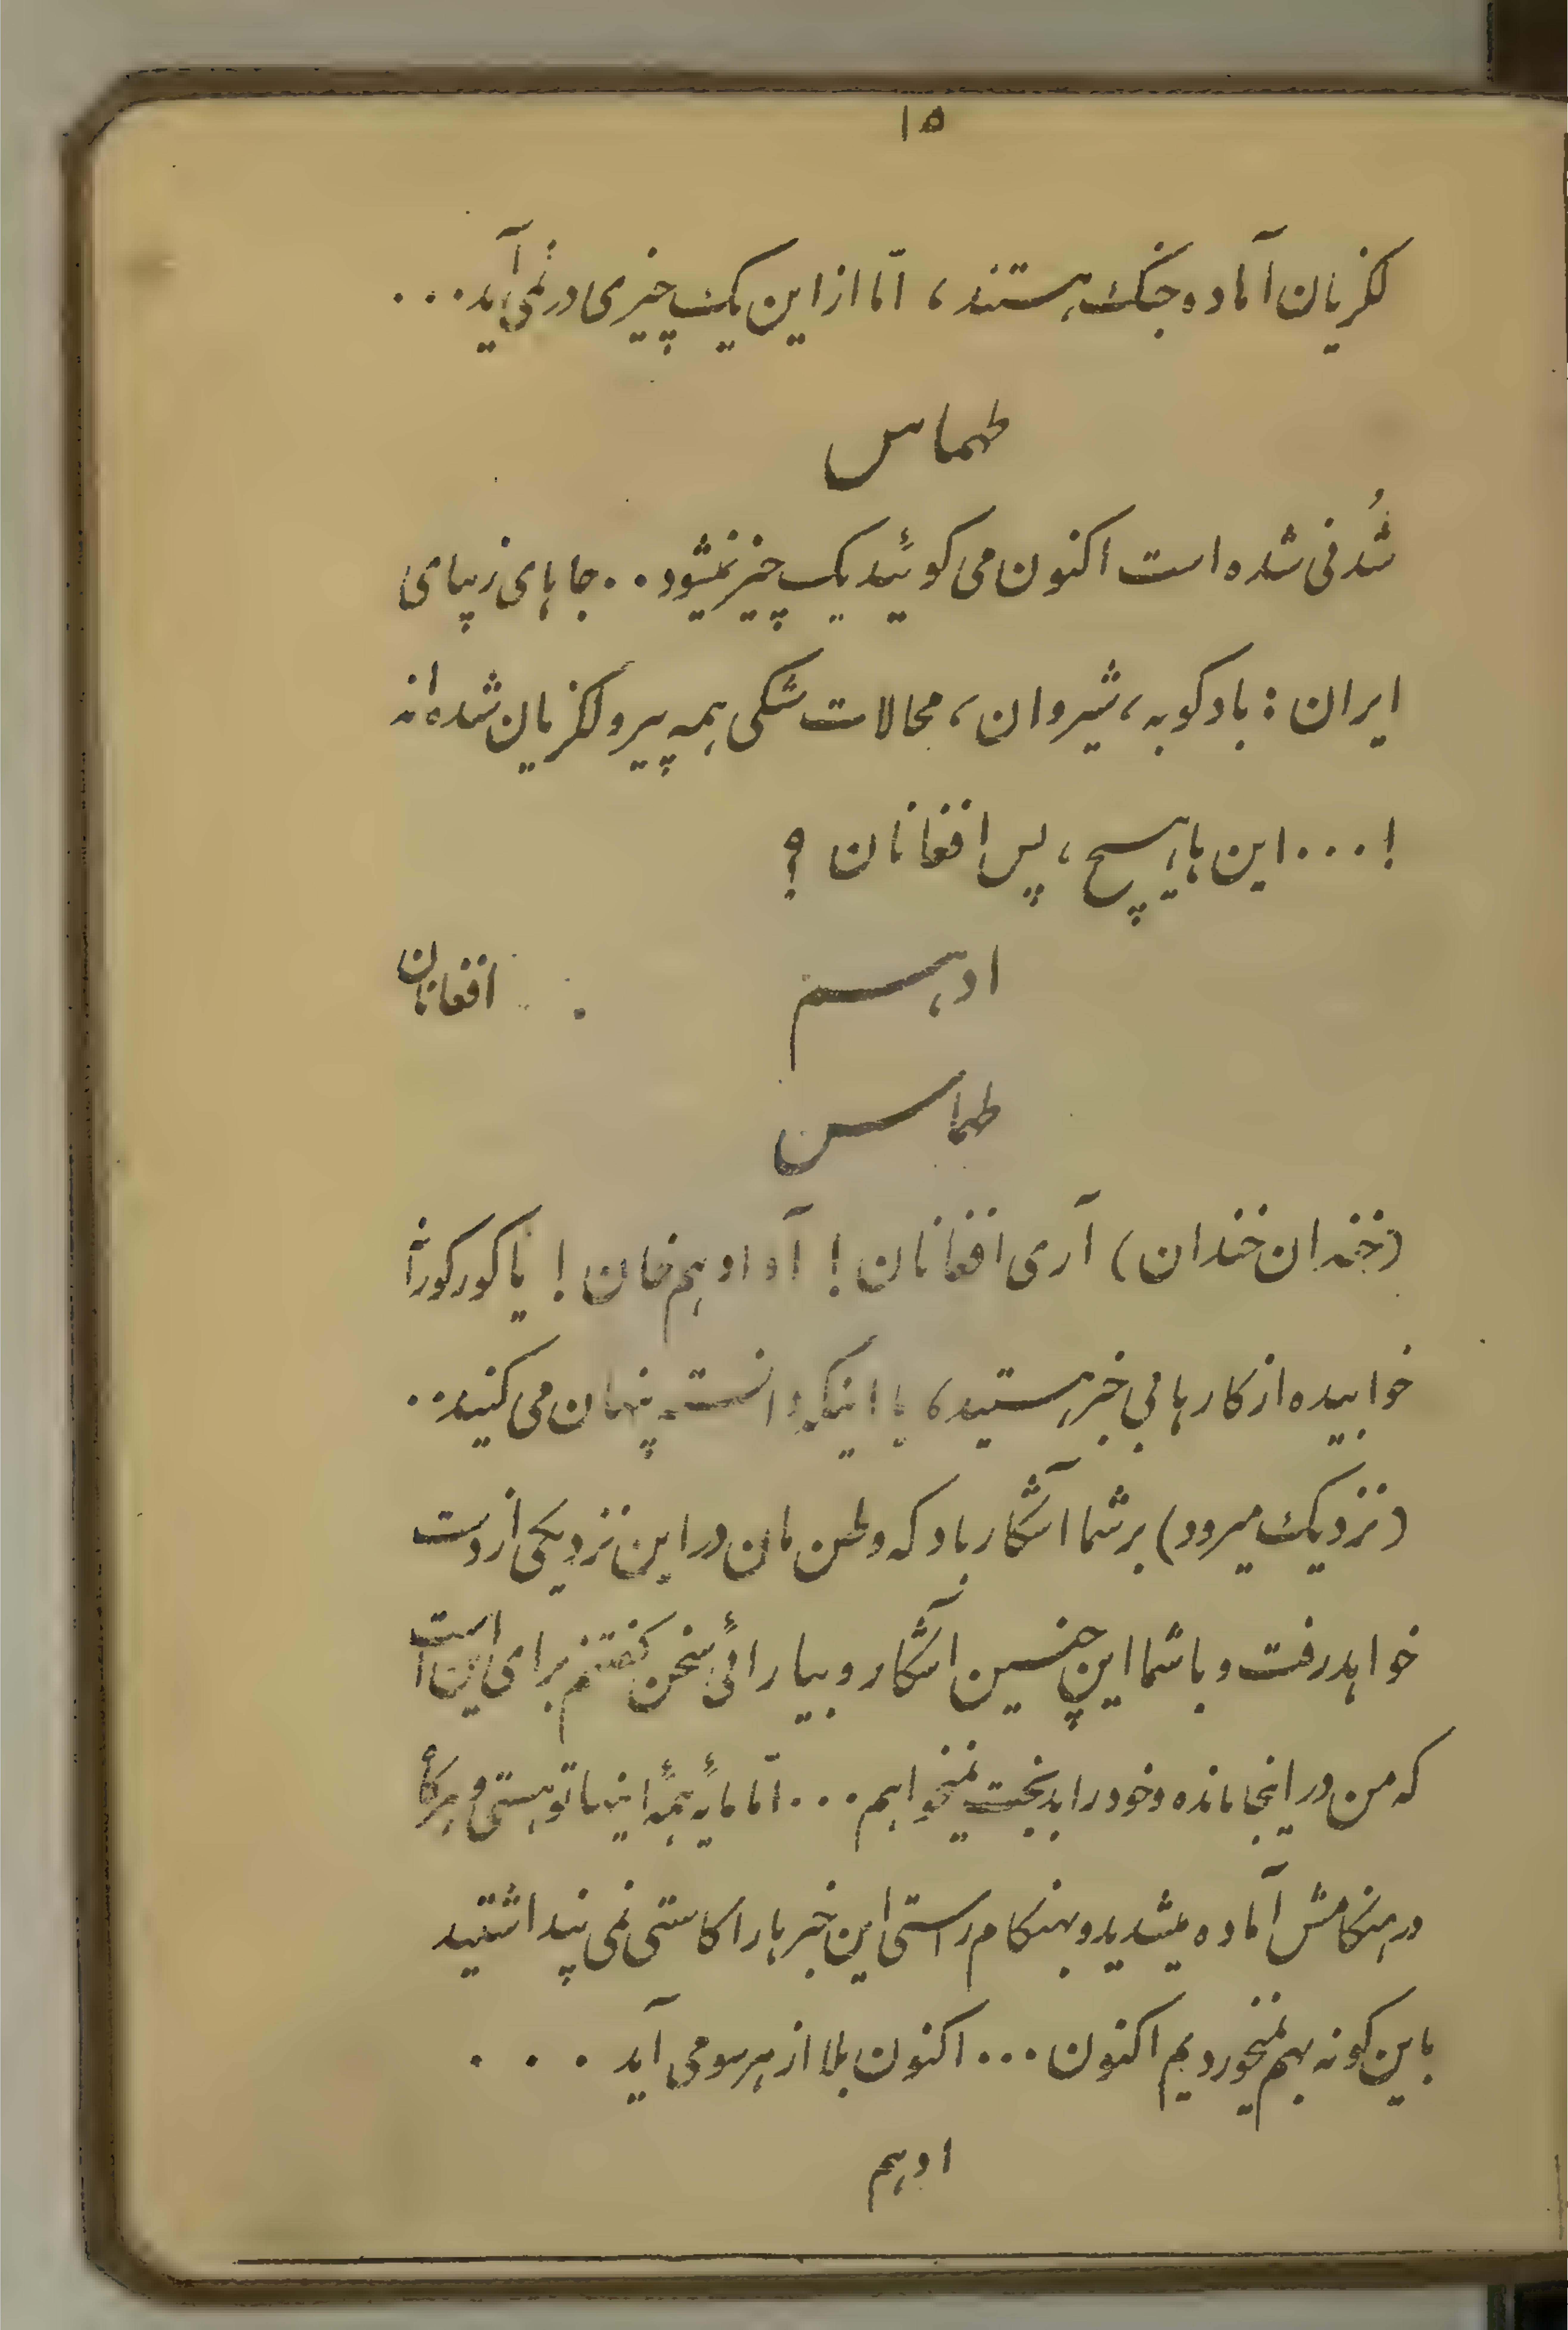 ۱۵
لکزیان آماده جنک هستند، امّا از این یک چیزی در نمی آید...
طهماس
شُدنی شده است اکنون می کوئید یک چیز نمیشود.. جاهای زیبای
ایران: بادکوبه، شیروان، محالات شکی همه پیرو لکزیان شده اند
!... این ها هیچ، پس افغانان ؟
ادهم
افغانان
طهماس
(خندان خندان) آری افغانان! آه ادهم خان! یا کورکورانه
خوابیده از کارها بی خبر هستید، یا اینکه دانسته پنهان می کنید..
(نزدیک میرود) بر شما آشکار باد که وطن مان در این نزدیکی از دست
خواهد رفت و با شما این چنین آشکار و بیارائی سخن کفتنم برای این است
که من در اینجا مانده و خود را بدبخت نمیخواهم... امّا مایهٔ همهٔ اینها تو هستی و هرکاه
در هنکامش آماده میشدید و بهنکام راستی این خبر ها را کاستی نمی پنداشتید
باین کونه بهم نمیخوردیم اکنون... اکنون بلا از هر سو می آید ...
ادهم